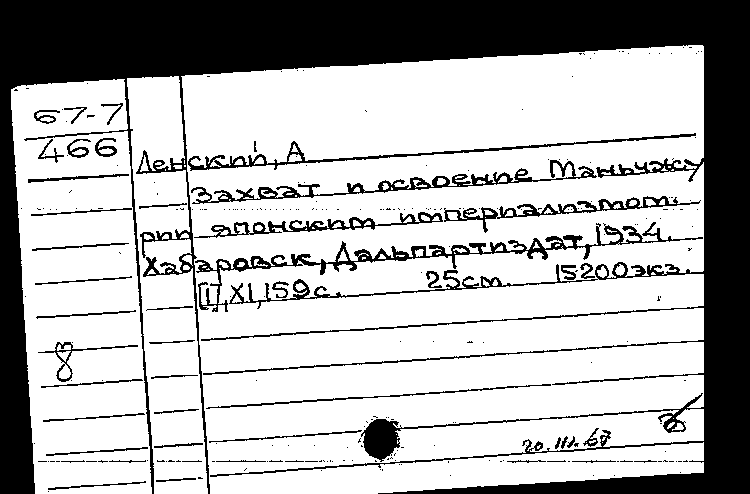 67-7
466
Ленский, А
Захват и освоение Маньчжу
рии японским империализмом.
Хабаровск, Дальпартиздат, 1934.
[I], XI, 159 с. 25см. 15200экз.
8
20.III.67